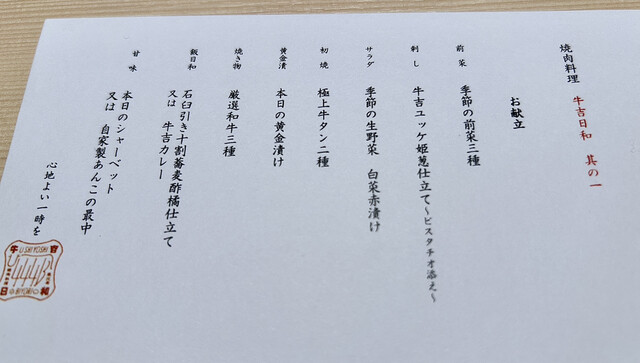 焼肉料理 牛吉日和 其の一
お献立
前菜
季節の前菜三種
刺し
牛吉ユッケ姫葱仕立て～ピスタチオ添え～
サラダ
季節の生野菜 白菜赤漬け
初焼
極上牛タン二種
黄金漬
本日の黄金漬け
焼き物
厳選和牛三種
飯日和
石臼引き十割蕎麦酢橘仕立て
又は 牛吉カレー
甘味
本日のシャーベット
又は 自家製あんこの最中
心地よい一時を
牛吉
USHIYOSHI
日和